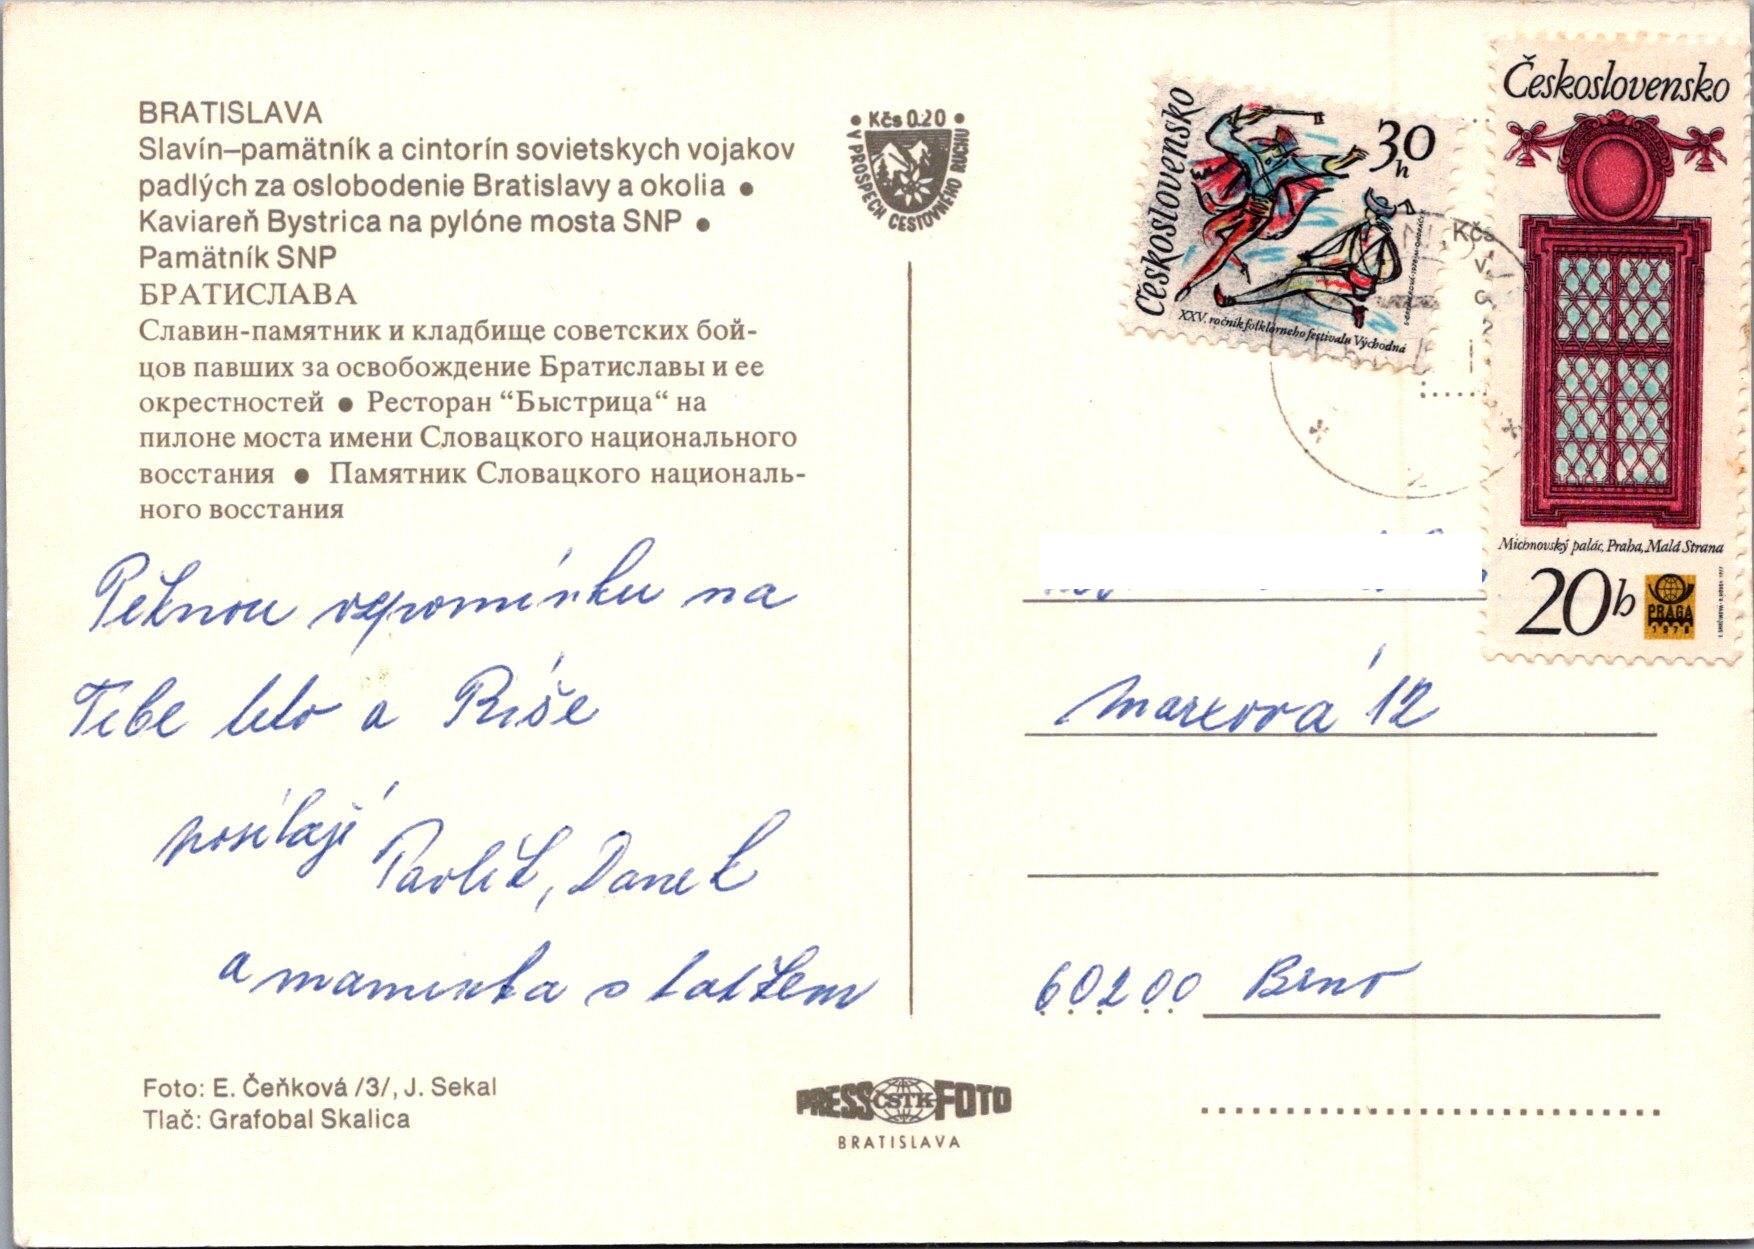 BRATISLAVA
Slavín–pamätník a cintorín sovietskych vojakov
padlých za oslobodenie Bratislavy a okolia ●
Kaviareň Bystrica na pylóne mosta SNP ●
Pamätník SNP
БРАТИСЛАВА
Славин-памятник и кладбище советских бой-
цов павших за освобождение Братиславы и ее
окрестностей ● Ресторан “Быстрица“ на
пилоне моста имени Словацкого национального
восстания ● Памятник Словацкого националь-
ного восстания
Pěknou vzpomínku na
Tebe teto a Ríše
posílají Pavlík, Danek
a maminka s tatkem
Foto: E. Čeňková /3/, J. Sekal
Tlač: Grafobal Skalica
• Kčs 0.20 •
V PROSPECH CESTOVNÉHO RUCHU
PRESS ČSTK FOTO
BRATISLAVA
Československo
30h
XXV. ročník folklórneho festivalu Východná
Československo
Michnovský palác, Praha, Malá Strana
20h
PRAGA
1978
Kčs
Marxova 12
60200 Brno